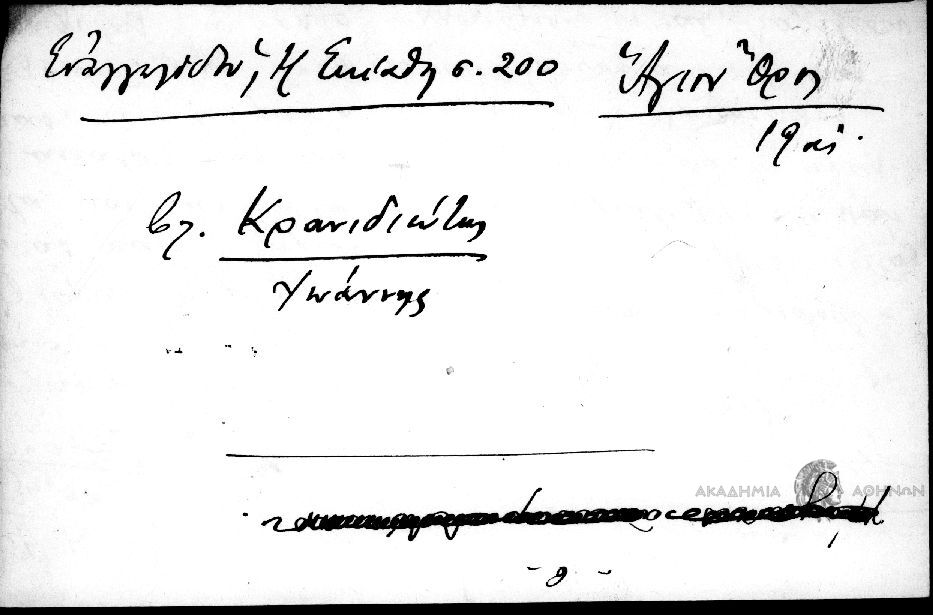 Εὐαγγελίδου, Ἡ Σκίαθος σ. 200
Ἅγιον Ὄρος
19 αἰ.
βλ. Κρανιδιώτης
Ἰωάννης
ΑΚΑΔΗΜΙΑ ΑΘΗΝΩΝ